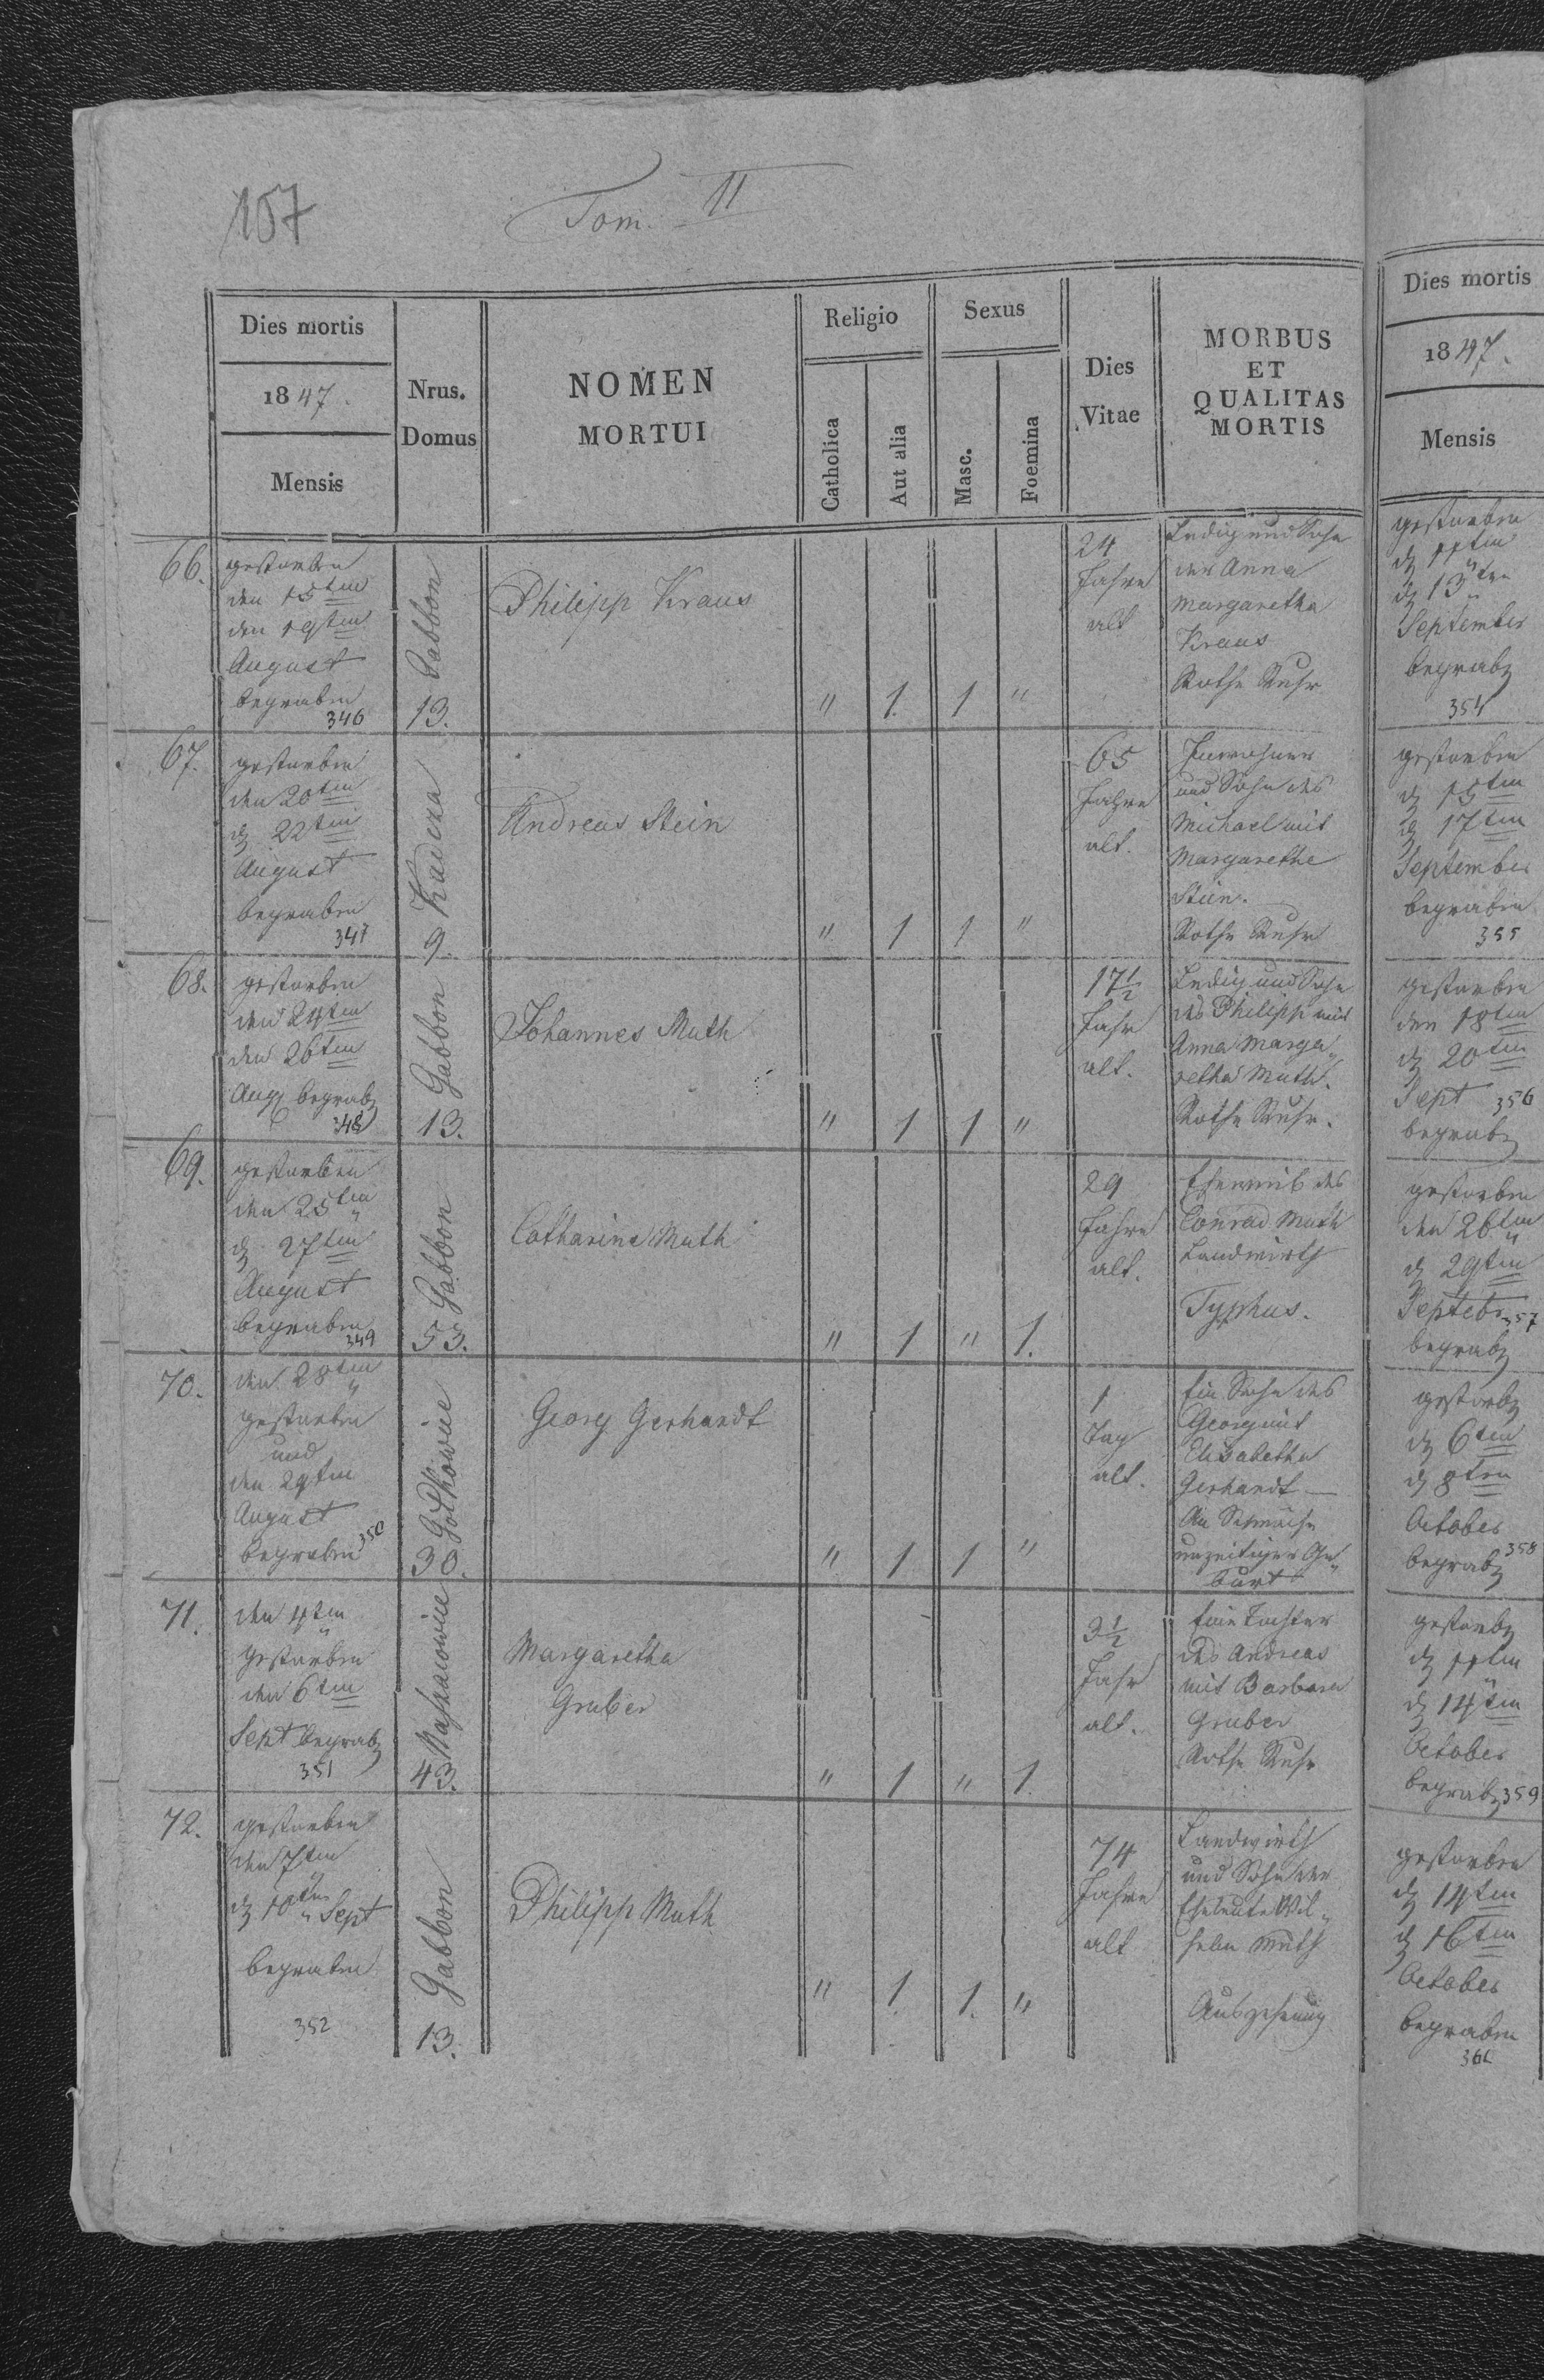 107
Tom. II
Dies mortis
1847.
Mensis
Nrus.
Domus
NOMEN
MORTUI
Religio
Catholica
Aut alia
Sexus
Masc.
Foemina
Dies
Vitae
MORBUS
ET
QUALITAS
MORTIS
66.
gestorben
den 15ten
den 19ten
August
begraben
346
Gabbon
13.
Philipp Kraus
" 1. 1 "
24
Jahre
alt
Ledig und Sohn
der Anna
Margaretha
Kraus
Rothe Ruhr
67.
gestorben
den 20ten
d 22ten
August
begraben
347
9.
Andreas Stein
" 1 1 "
65
Jahre
alt.
Inwohner
und Sohn des
Michael mit
Margarethe
Stein.
Rothe Ruhr
68.
gestorben
den 24ten
den 26ten
Aug begrab
348
Gabbon
13.
Johannes Muth
" 1 1 "
17½
Jahr
alt.
Ledig und Sohn
des Philipp mit
Anna Marga"
retha Muth.
Rothe Ruhr.
69.
gestorben
den 25ten
d 27ten
August
begraben
349
Gabbon
53.
Catharina Muth
" 1 " 1.
29
Jahre
alt.
Eheweib des
Conrad Muth
Landwirth
Typhus.
70.
den 28ten
gestorben
und
den 29ten
August
begraben 350
30.
Georg Gerhardt
" 1 1 "
1
Tag
alt.
Ein Sohn des
Georg mit
Elisabetha
Gerhardt —
An Schwäche
unzeitiger Ge"
burt
71.
den 4ten
gestorben
den 6ten
Sept begrab
351
43.
Margaretha
Gruber
" 1 " 1.
3½
Jahr
alt.
Eine Tochter
des Andreas
mit Barbara
Gruber
Rothe Ruhr
72.
gestorben
den 7ten
d 10ten Sept
begraben
352
Gabbon
13.
Philipp Muth
" 1. 1. "
74
Jahre
alt
Landwirth
und Sohn der
Eheleute Wil"
helm Muth
Auszehrung
Dies mortis
1847.
Mensis
gestorben
d 11ten
d 13ten
September
begrab
354
gestorben
d 15ten
d 17ten
September
begraben
355
gestorben
den 18ten
d 20ten
Sept 356
begrab
gestorben
den 26ten
d 29ten
Septebr 357
begrab
gestorb
d 6ten
d 8ten
October
begrab 358
gestorb
d 11ten
d 14ten
October
begrab 359
gestorben
d 14ten
d 16ten
October
begraben